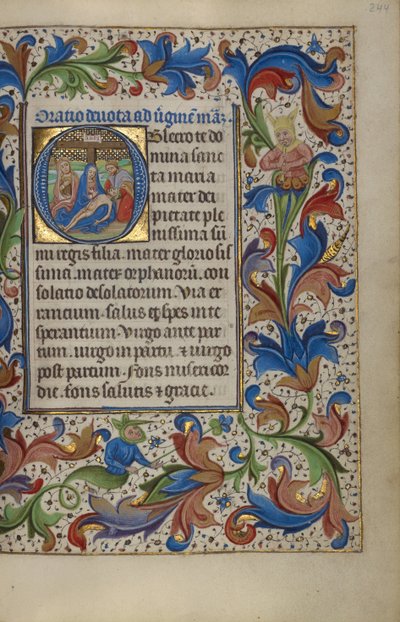 244
Oratio deuota ad v̄ginē mar̄
Obsecro te do
mina sanc
ta maria
mater dei
pietate ple
nissima sū
mi regis filia. mater glorio sis
sima. mater orphanorū. con
solatio desolatorum. Via er
rancium. salus et spes in te
sperantium. Virgo ante par
tum. uirgo in partu. & uirgo
post partum. Fons misericor
die. fons salutis & gracie.